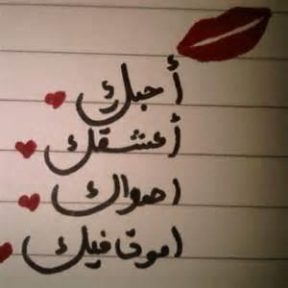 أحبك
أعشقك
اهواك
اموت فيك